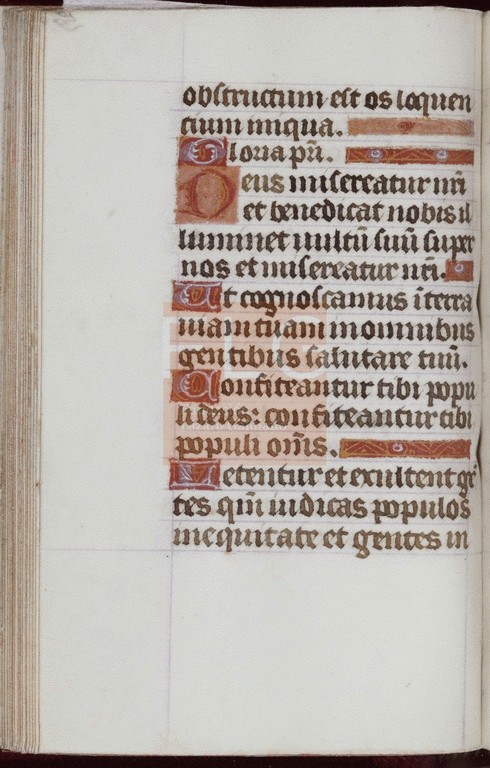 obstructum est os loquen
cium iniqua.
Gloria pr̃i.
Deus misereatur nr̃i
et benedicat nobis il
luminet vultũ suũ super
nos et misereatur nr̃i.
Ut cognoscamus ĩ terra
viam tuam in omnibus
gentibus salutare tuũ.
Confiteantur tibi popu
li deus: confiteantur tibi
populi om̃s.
Letentur et exultent gẽ
tes qm̃ iudicas populos
in equitate et gentes in